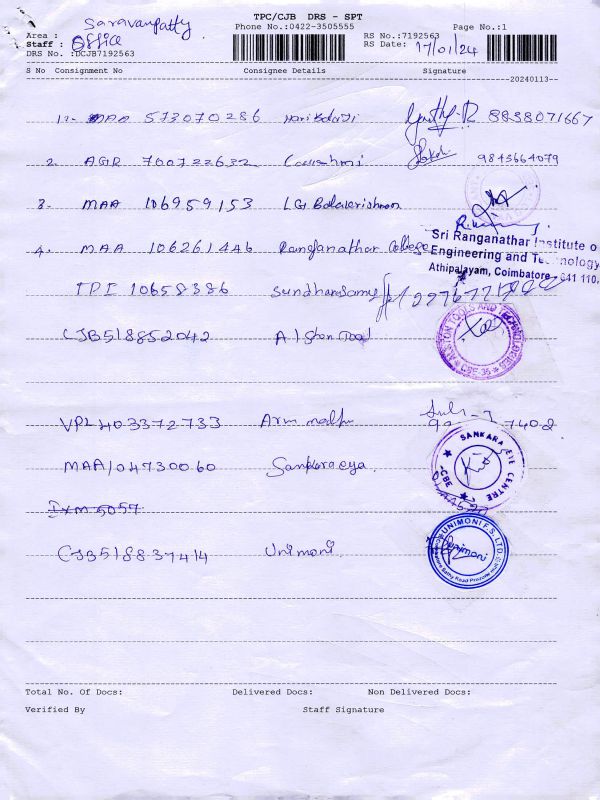 TPC/CJB DRS - SPT
Saravanpatty
Phone No.:0422-3505555 Page No.:1
Area : RS No.:7192563
Staff : Office RS Date: 17/01/24
DRS No. :DCJB7192563
S No Consignment No Consignee Details Signature
20240113--
1. MAA 573070286 Hari Balaji 8838071667
2. AGR 700722632 9843664079
3. MAA 106959153 LG Balakrishnan
4. MAA 106261446 Ranganathar College
Sri Ranganathar Institute o
Engineering and Technology
Athipalayam, Coimbatore - 641 110.
TPI 10658386 Sundharasamy
CJB518852042 Alston road
TOOLS AND TECHNOLOGIES
CBE-35
VPL403372733
MAA104730060 Sankaraeya
SANKARA EYE CENTRE
CBE
IXM 5057
CJB518837414 Unimoni
UNIMONI F.S. LTD.
Unimoni
Total No. Of Docs: Delivered Docs: Non Delivered Docs:
Verified By Staff Signature